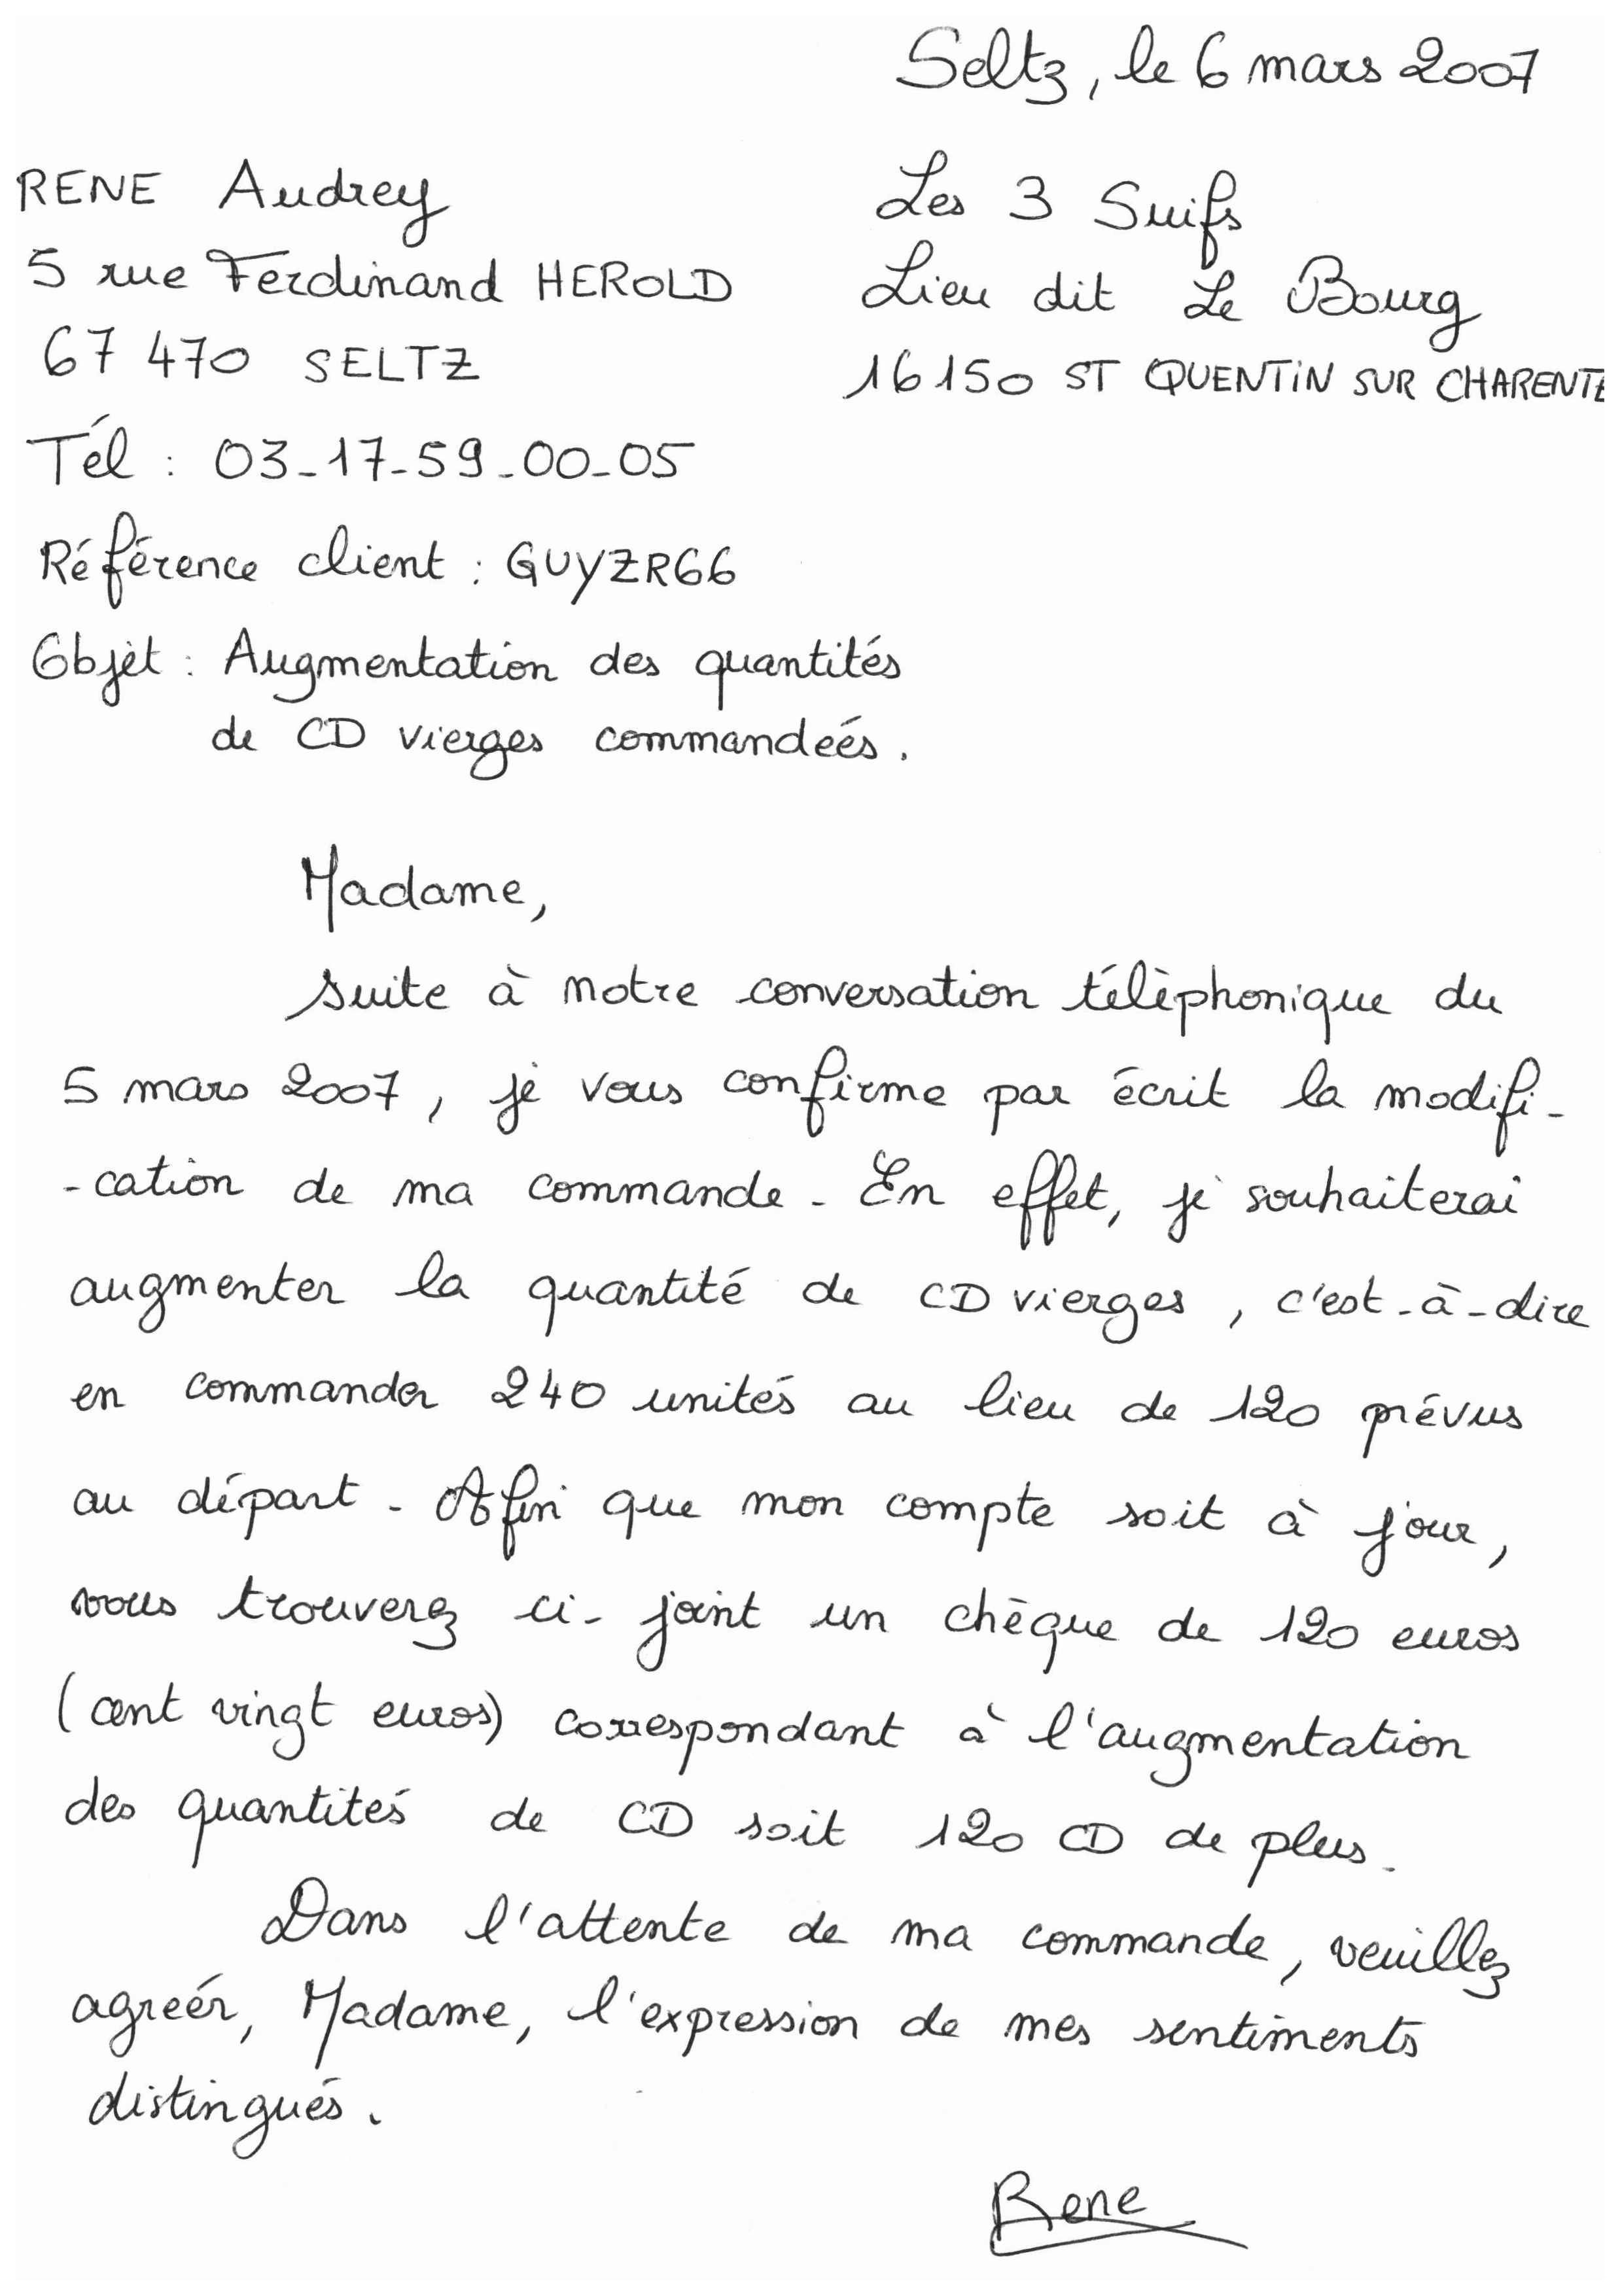 Seltz, le 6 mars 2007
RENE Audrey
5 rue Ferdinand HEROLD
67 470 SELTZ
Tél : 03-17-59-00-05
Référence client : GUYZR66
Les 3 Suifs
Lieu dit Le Bourg
16150 ST QUENTIN SUR CHARENTE
Objet : Augmentation des quantités
de CD vierges commandées.
Madame,
suite à notre conversation téléphonique du
5 mars 2007, je vous confirme par écrit la modifi-
-cation de ma commande. En effet, je souhaiterai
augmenter la quantité de CD vierges, c'est-à-dire
en commander 240 unités au lieu de 120 prévus
au départ. Afin que mon compte soit à jour,
vous trouverez ci-joint un chèque de 120 euros
(cent vingt euros) correspondant à l'augmentation
des quantités de CD soit 120 CD de plus.
Dans l'attente de ma commande, veuillez
agréer, Madame, l'expression de mes sentiments
distingués.
Rene